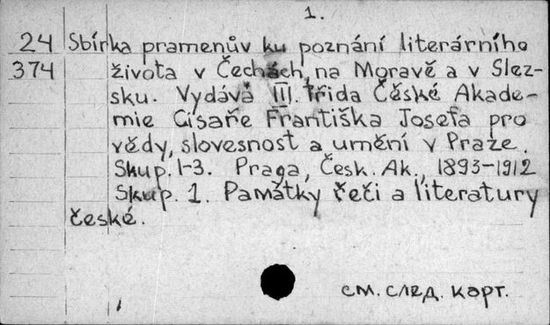 1.
24 Sbírka pramenův ku poznání literárního
374 života v Čechách, na Moravě a v Slez-
sku. Vydává III. třída České Akade-
mie Císaře Františka Josefa pro
vědy, slovesnost a umění v Praze.
Skup. 1-3. Praga, Česk. Ak., 1893-1912
Skup. 1. Památky řeči a literatury
české.
см. след. карт.